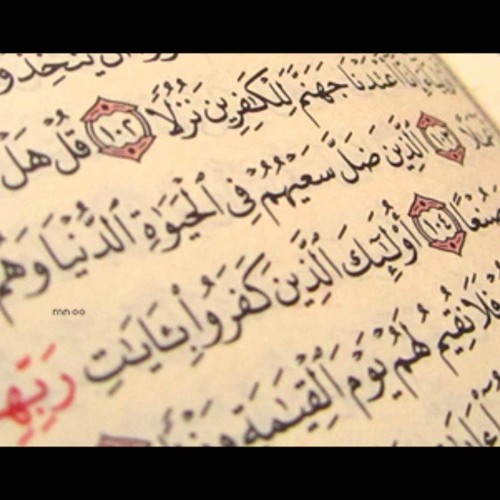 أَن يَتَّخِذُو
إِنَّا أَعْتَدْنَا جَهَنَّمَ لِلْكَٰفِرِينَ نُزُلًا ١٠٢ قُلْ هَلْ
١٠٣ ٱلَّذِينَ ضَلَّ سَعْيُهُمْ فِى ٱلْحَيَوٰةِ ٱلدُّنْيَا وَهُمْ
صُنْعًا ١٠٤ أُو۟لَٰٓئِكَ ٱلَّذِينَ كَفَرُوا۟ بِـَٔايَٰتِ رَبِّهِ
فَلَا نُقِيمُ لَهُمْ يَوْمَ ٱلْقِيَٰمَةِ وَزْنًا
mnoo